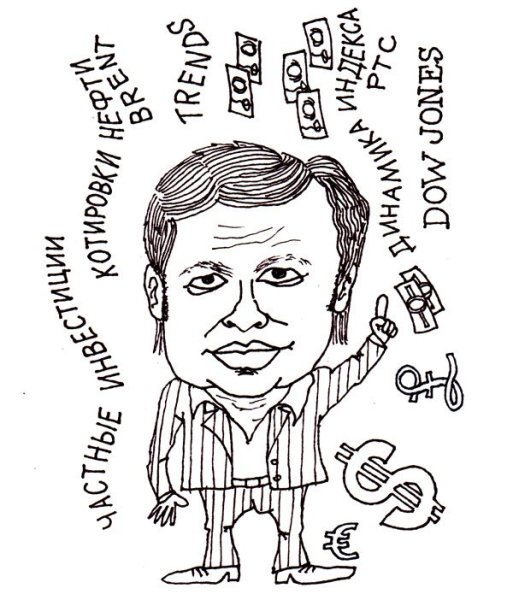 ЧАСТНЫЕ ИНВЕСТИЦИИ
КОТИРОВКИ НЕФТИ
BRENT
TRENDS
ДИНАМИКА ИНДЕКСА
РТС
DOW JONES
£
$
€